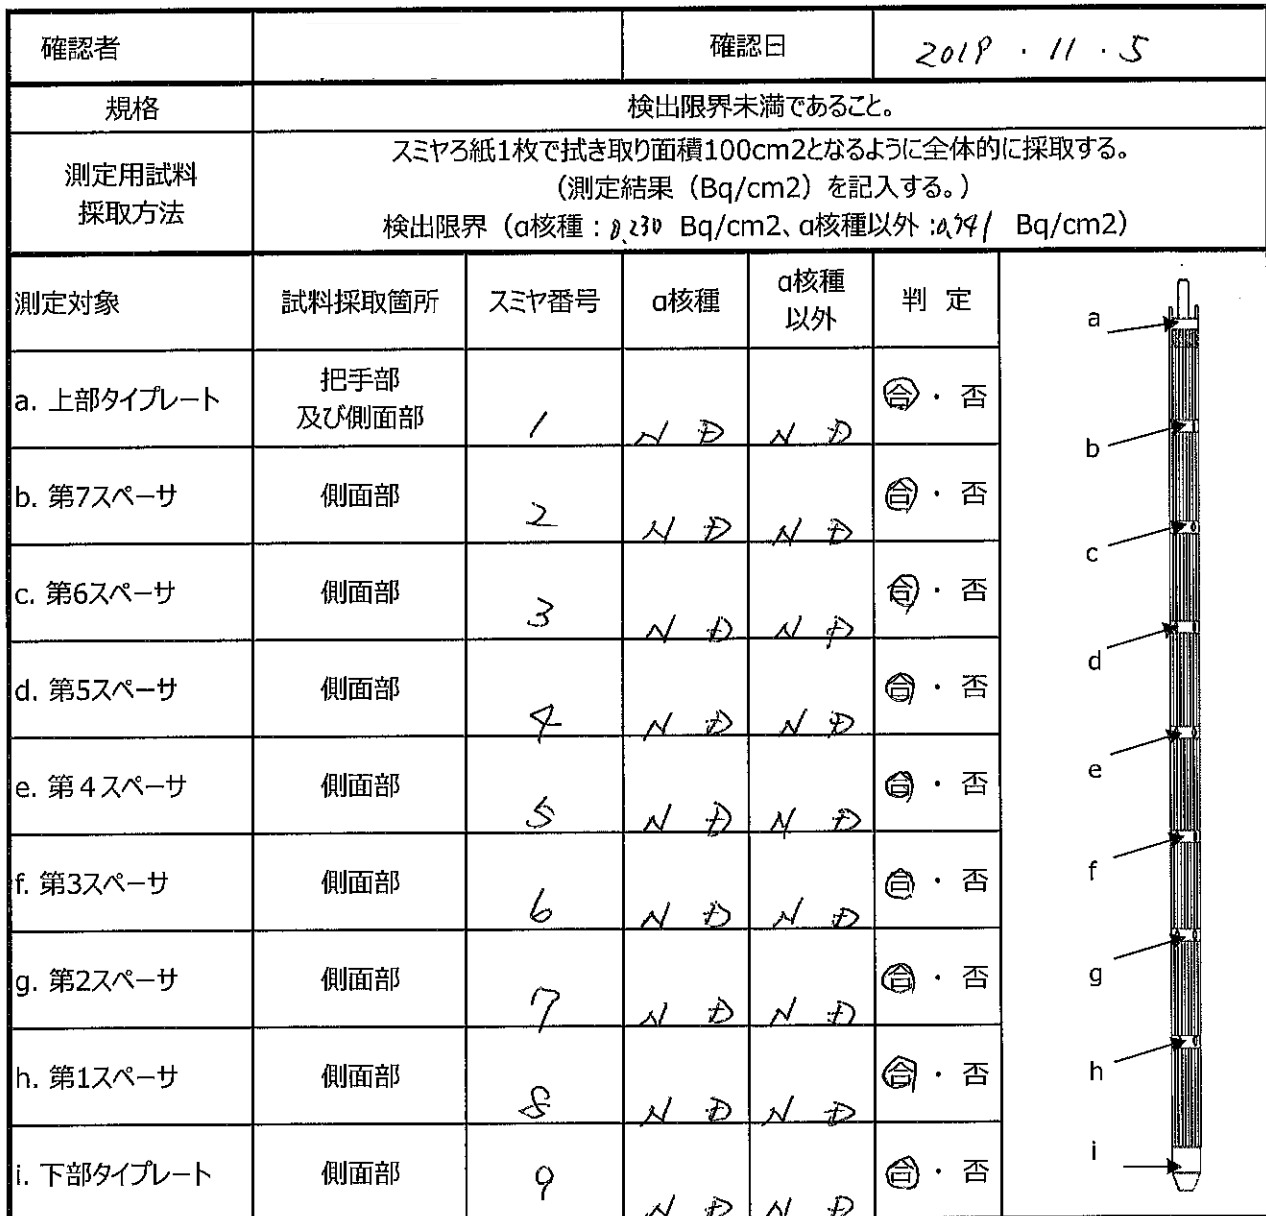 確認者 確認日 2019・11・5
規格 検出限界未満であること。
測定用試料
採取方法
スミヤろ紙1枚で拭き取り面積100cm2となるように全体的に採取する。
(測定結果(Bq/cm2)を記入する。)
検出限界(α核種:0.230 Bq/cm2、α核種以外:0.741 Bq/cm2)
測定対象 試料採取箇所 スミヤ番号 α核種 α核種以外 判 定
a. 上部タイプレート 把手部及び側面部 1 N D N D 合・否
b. 第7スペーサ 側面部 2 N D N D 合・否
c. 第6スペーサ 側面部 3 N D N D 合・否
d. 第5スペーサ 側面部 4 N D N D 合・否
e. 第4スペーサ 側面部 5 N D N D 合・否
f. 第3スペーサ 側面部 6 N D N D 合・否
g. 第2スペーサ 側面部 7 N D N D 合・否
h. 第1スペーサ 側面部 8 N D N D 合・否
i. 下部タイプレート 側面部 9 N D N D 合・否
a
b
c
d
e
f
g
h
i